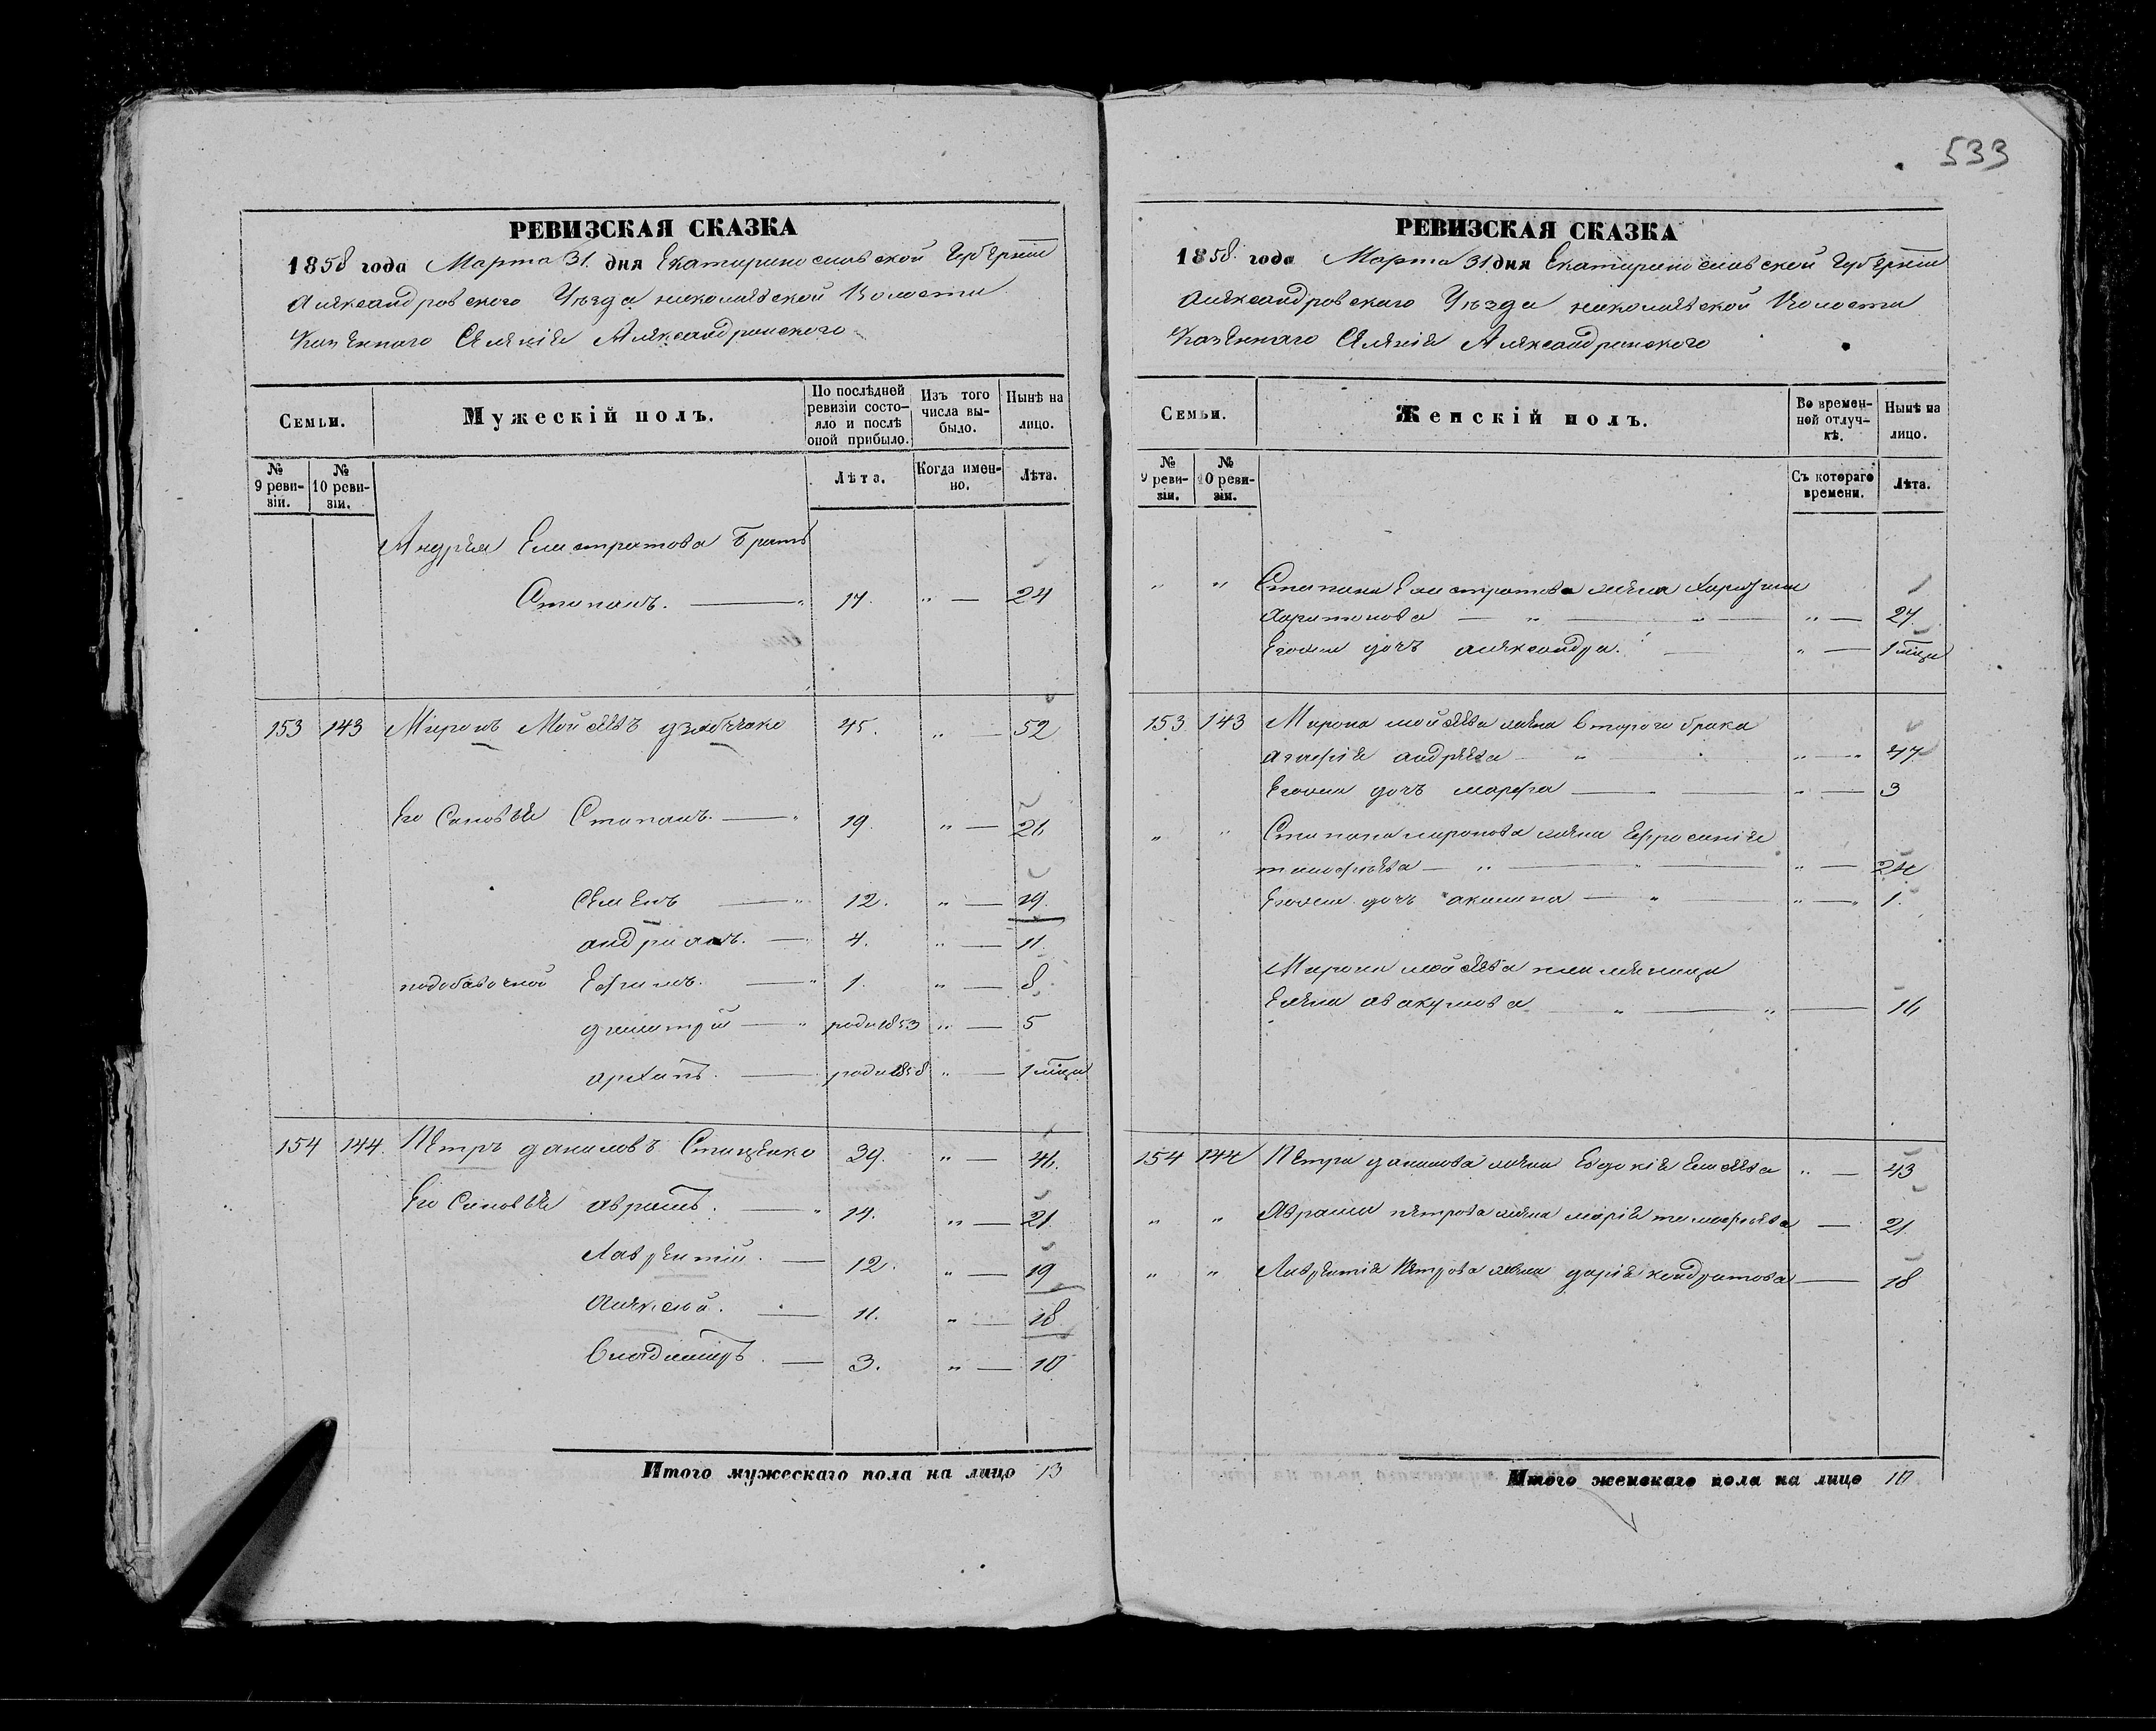 533
РЕВИЗСКАЯ СКАЗКА
1858 года Марта 31. дня Екатеринославской Губерніи
Александровского Уѣзда николаевской Волости
Казенного Селенія Александринского
Семьи. Мужескій полъ. По послѣдней ревизіи состояло и послѣ оной прибыло. Изъ того числа выбыло. Нынѣ на лицо.
№ 9 ревизіи. № 10 ревизіи. Лѣта. Когда именно. Лѣта.
Андрея Елистратова Братъ
Степанъ. — " 17. " — 24
153 143 Миронъ Мойсеевъ 45. " — 52
Его Сыновья Степанъ. — " 19. " — 26
Семенъ — " 12. " — 19.
андриянъ. — 4. " — 11.
подобавочной Ефимъ. — " 1. " — 8.
димитрій — " роди 1853 " — 5
архипъ. — роди 1858 " — 1 мѣця
154 144. Петръ даниловъ Стиценко 39. " — 46.
Его Сыновья аврамъ. — " 14. " — 21.
Лаврентій. — 12. " — 19
Алексѣй. — 11. " — 18
Владимиръ. — 3. " — 10
Итого мужескаго пола на лицо 13
РЕВИЗСКАЯ СКАЗКА
1858. года Марта 31 дня Екатеринославской Губерніи
Александровскаго Уѣзда николаевской Волости
Казеннаго Селенія Александринского
Семьи. Женскій полъ. Во временной отлучкѣ. Нынѣ на лицо.
№ 9 ревизіи. № 10 ревизіи. Съ котораго времени. Лѣта.
" " Степана Елистратова жена
харитонова — " — " — " — 27.
Егоже дочь александра. — " — 1 мѣця
153 143 Мирона мойсеева жена второго брака
агафія андреева — " — " — " 47.
Егоже дочь марфа — " — " — 3
" " Степана миронова жена Ефросинія
тимофѣева — " — " — " — 24
Егоже дочь акилина — " — " — " 1.
Мирона мойсеева племяница
Елена авакумова — " — " — 16
154 144 Петра данилова жена Евдокія Елисеева " — 43
" " Аврама петрова жена марія тимофѣева — 21.
" " Лаврентія Петрова жена дарія кондратова — 18
Итого женскаго пола на лицо 10